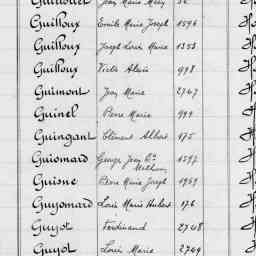 Guilloux Emile Marie Joseph 1596
Guilloux Joseph Louis Marie 1353
Guilloux Victor Alexis 998
Guimont Jean Marie 2747
Guinel Pierre Marie 999
Guingant Clément Albert 175
Guiomard George Jean Bte 1597
William
Guisne Pierre Marie Joseph 1959
Guyomard Louis Marie Hubert 176
Guyot Ferdinand 2748
Guyot Louis Marie 2749